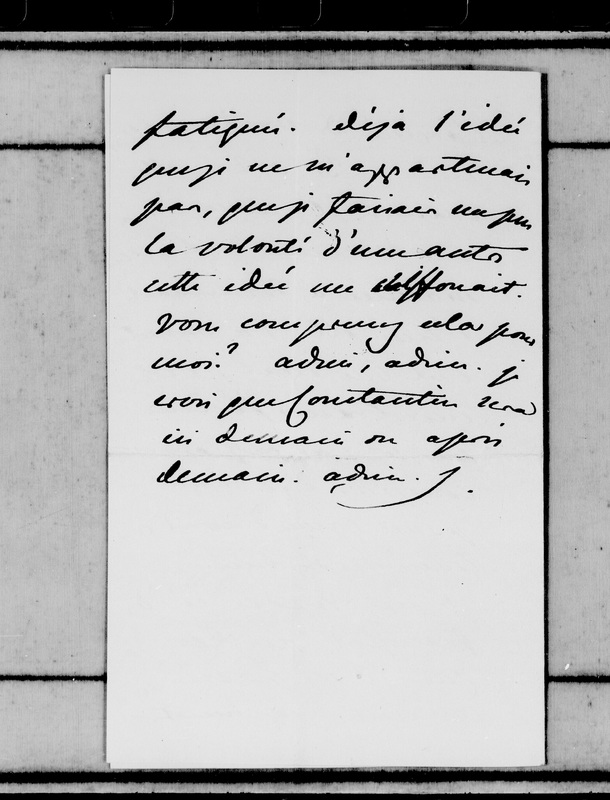 fatiguée. déja l'idée
que je ne m'appartenais
pas, que je faisais un peu
la volonté d'une autre
cette idée me
vous comprenez cela pour
moi? adieu, adieu. je
crois que Constantin sera
ici demain ou après
demain. adieu.